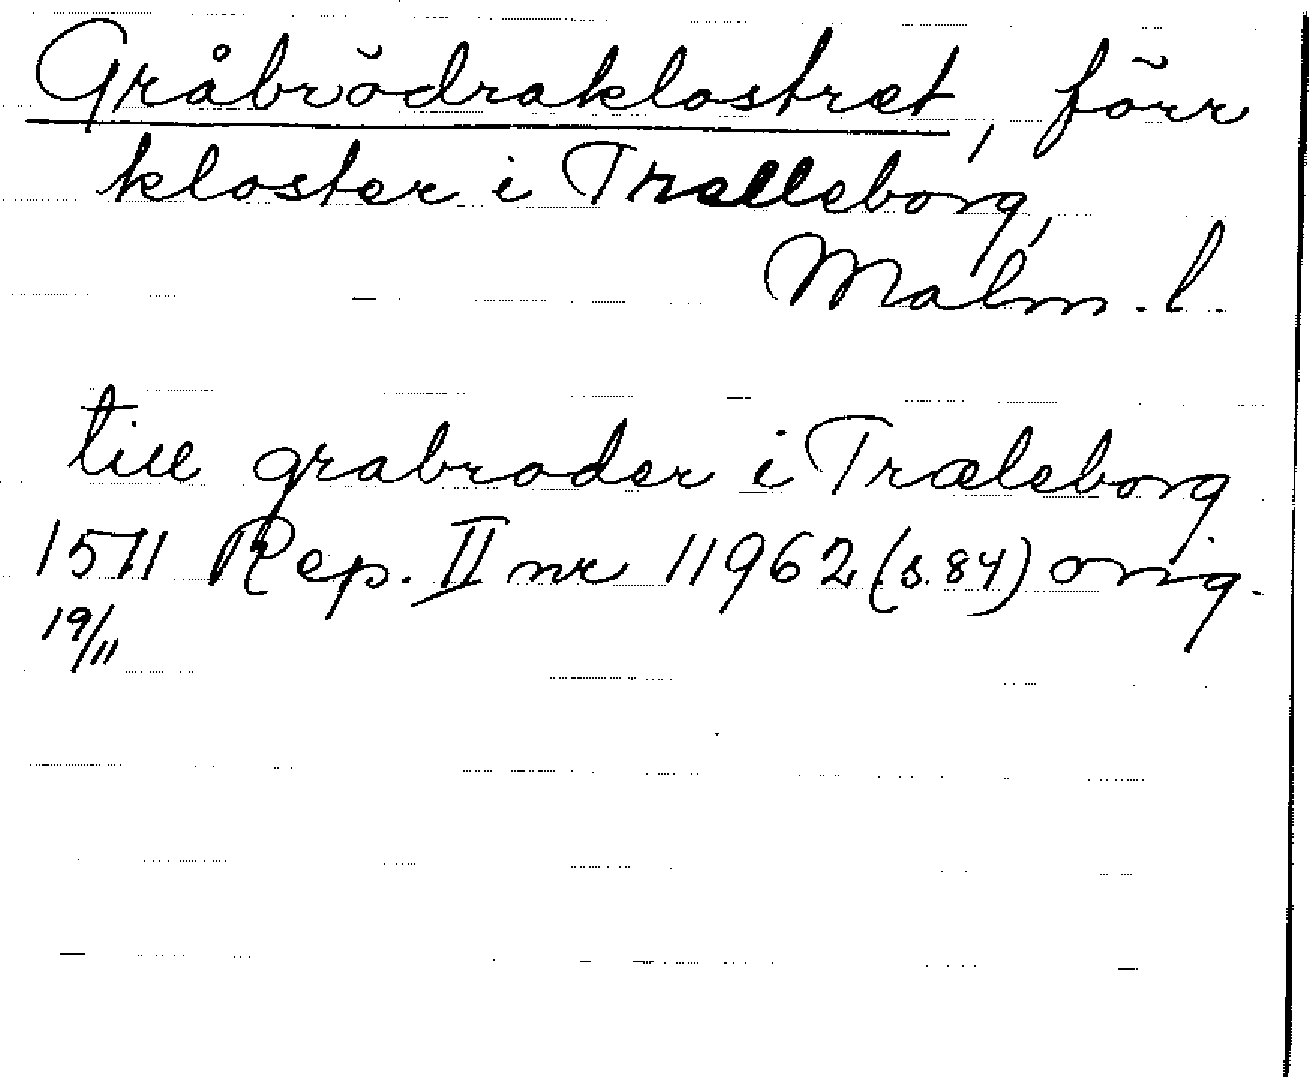 Gråbrödraklostret, förr
kloster i Trelleborg,
Malm. l.
till grabroder i Træleborg
1511 Rep. II nr 11962 (s. 84) orig.
19/11